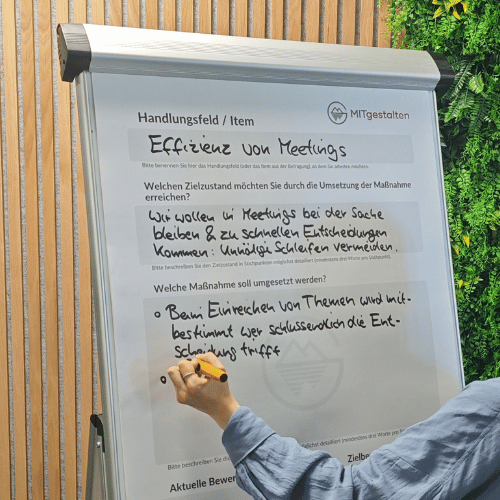 MITgestalten
Handlungsfeld / Item
Effizienz von Meetings
Bitte benennen Sie hier das Handlungsfeld (oder das Item aus der Befragung), an dem Sie arbeiten möchten.
Welchen Zielzustand möchten Sie durch die Umsetzung der Maßnahme
erreichen?
Wir wollen in Meetings bei der Sache
bleiben & zu schnellen Entscheidungen
kommen: Unnötige Schleifen vermeiden.
Bitte beschreiben Sie den Zielzustand in Stichpunkten möglichst detailliert (mindestens drei Worte pro Stichpunkt).
Welche Maßnahme soll umgesetzt werden?
Beim Einreichen von Themen wird mit-
bestimmt wer schlussendlich die Ent-
scheidung trifft
Bitte beschreiben Sie die
möglichst detailliert (mindestens drei Worte pro
Aktuelle Bewer
Zielbe